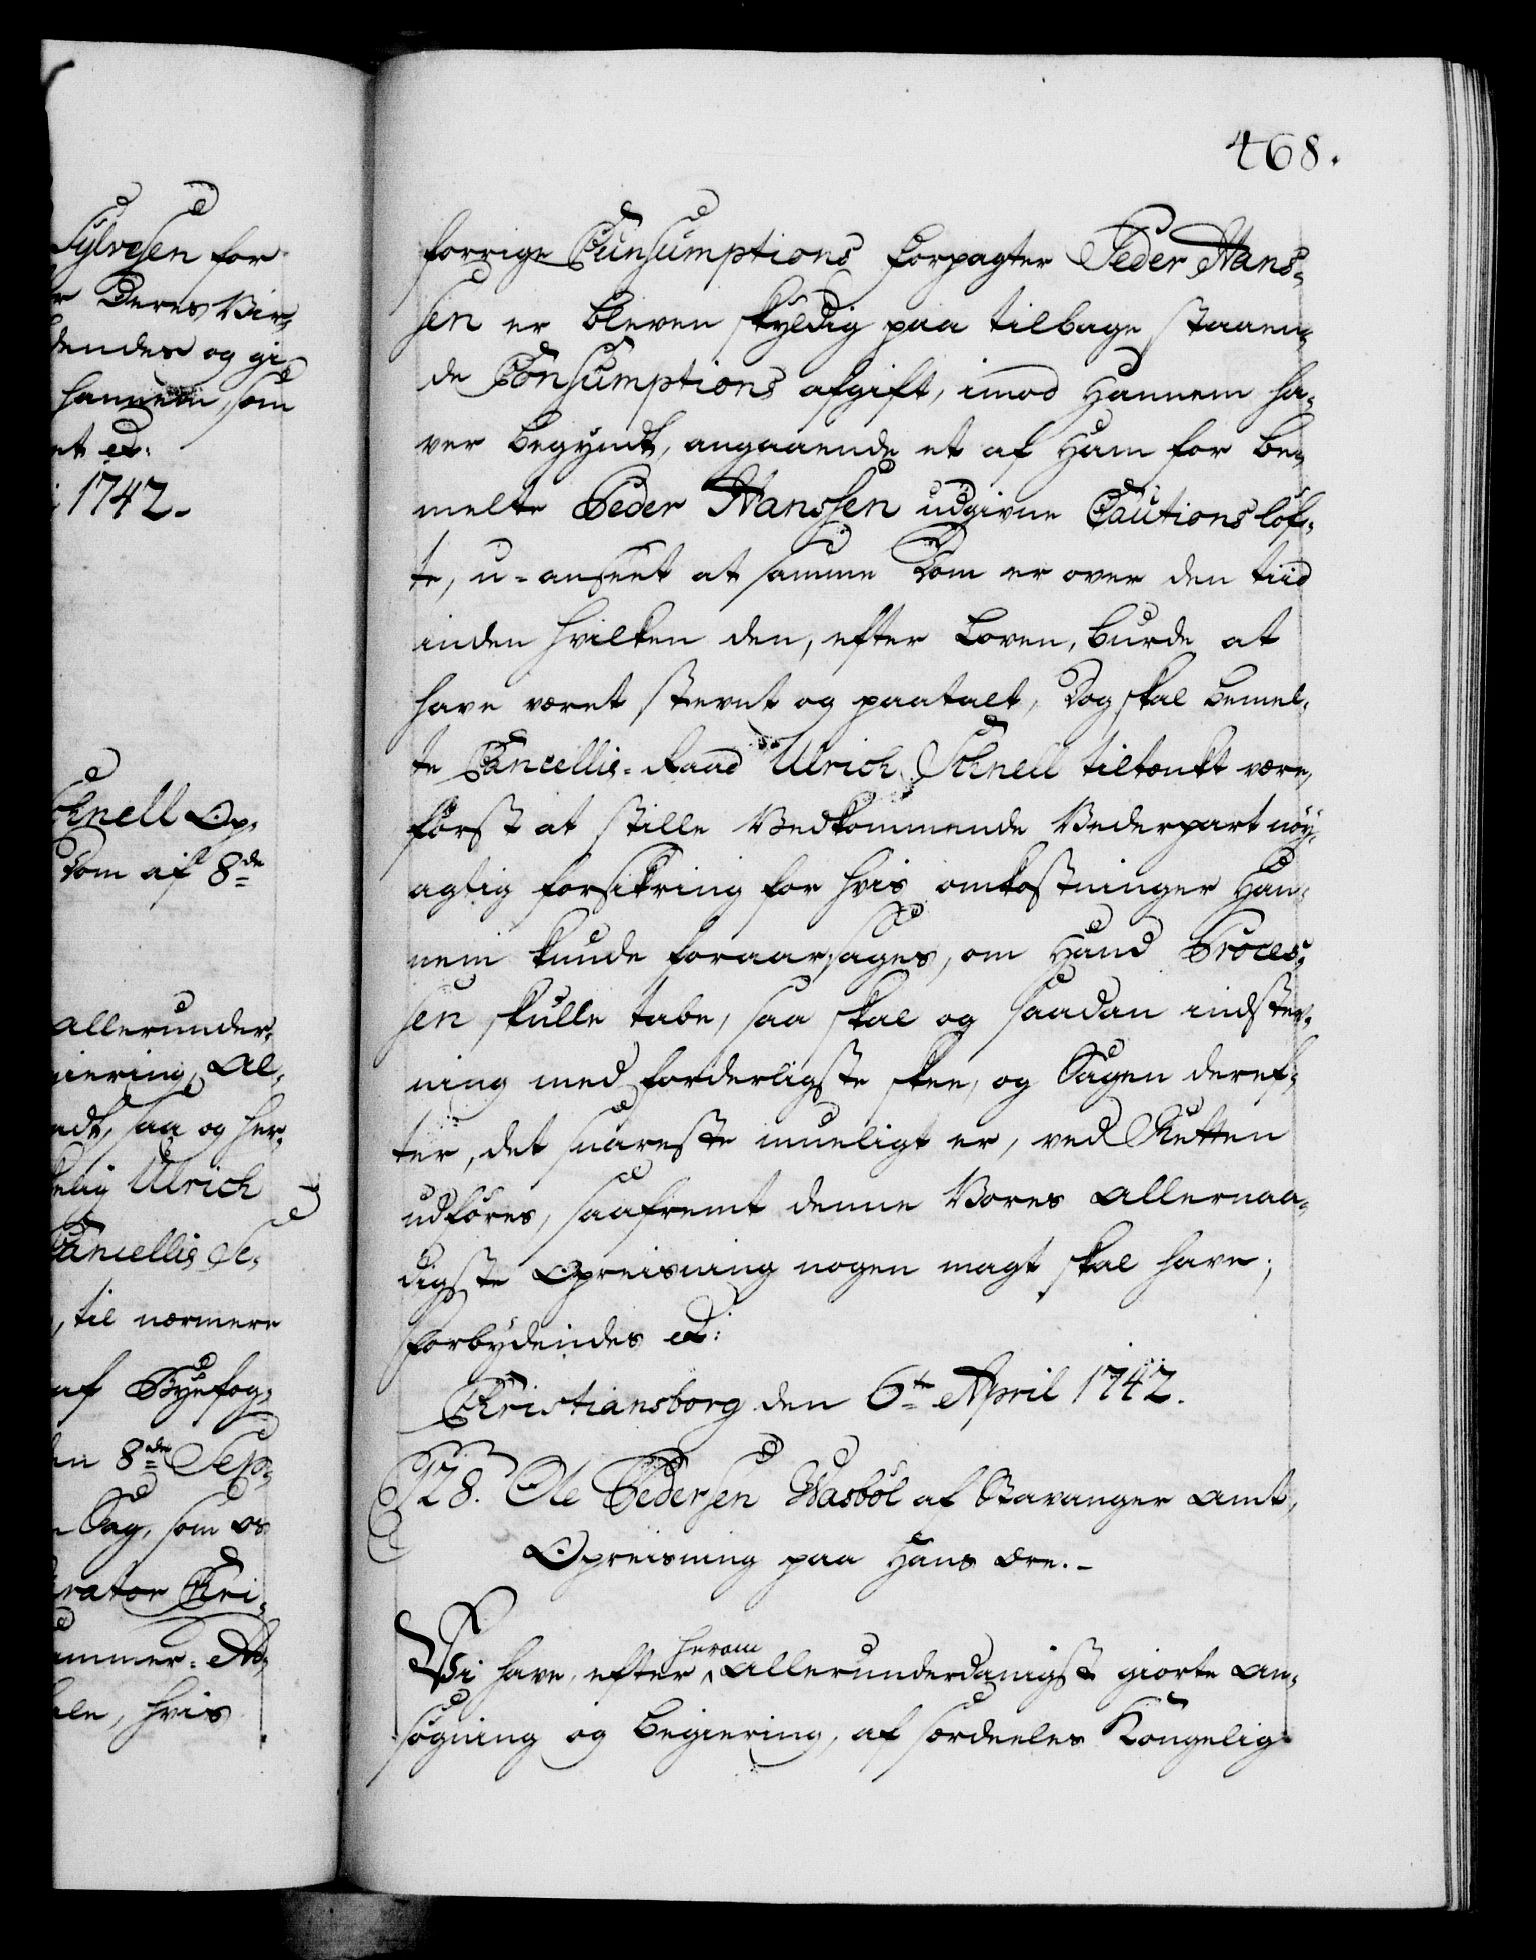 Sylvesen for
Deres Vir¬
dendes og gi
hannem, som
et etc:
1742.
chnell Op¬
Dom af 8de
allerunder¬
giering, Al¬
ndt, saa og her¬
elig Ulrich
Cancellis Se¬
, til nærmere
af Byefog¬
en 8de Sep¬
Sag, som os
urator Chri¬
ammer- Ad¬
ele, hvis
468.
forrige Cunsumptions Forpagter Peder Hans¬
sen er bleven skyldig paa tilbage staaen¬
de Consumptions afgift, imod Hannem ha¬
ver begyndt, angaaende et af Ham for be¬
melte Peder Hanssen udgivne Cautions løf¬
te, u-anseet at samme Dom er over den tiid
inden hvilken den, efter Loven, burde at
have været stevnt og paatalt, Dog skal bemel¬
te Cancellie-Raad Ulrich Schnell tiltænkt være,
først at stille Vedkommende Vederpart nøy¬
agtig forsikring for hvis omkostninger Han¬
nem kunde foraarsages, om Hand Proces¬
sen skulle tabe, saa skal og saadan indstev¬
ning med forderligste skee, og Sagen deref¬
ter, det snareste mueligt er, ved Retten
udføres, saafremt denne Vores allernaa¬
digste Opreisning nogen magt skal have;
forbydendes etc:
Christiansborg den 6te April 1742.
128. Ole Pedersen Wasbøl af Stavanger Amt,
Opreisning paa Hans ære.-
Vi have efter herom allerunderdanigst giorte An¬
søgning og begiering, af særdeeles Kongelig